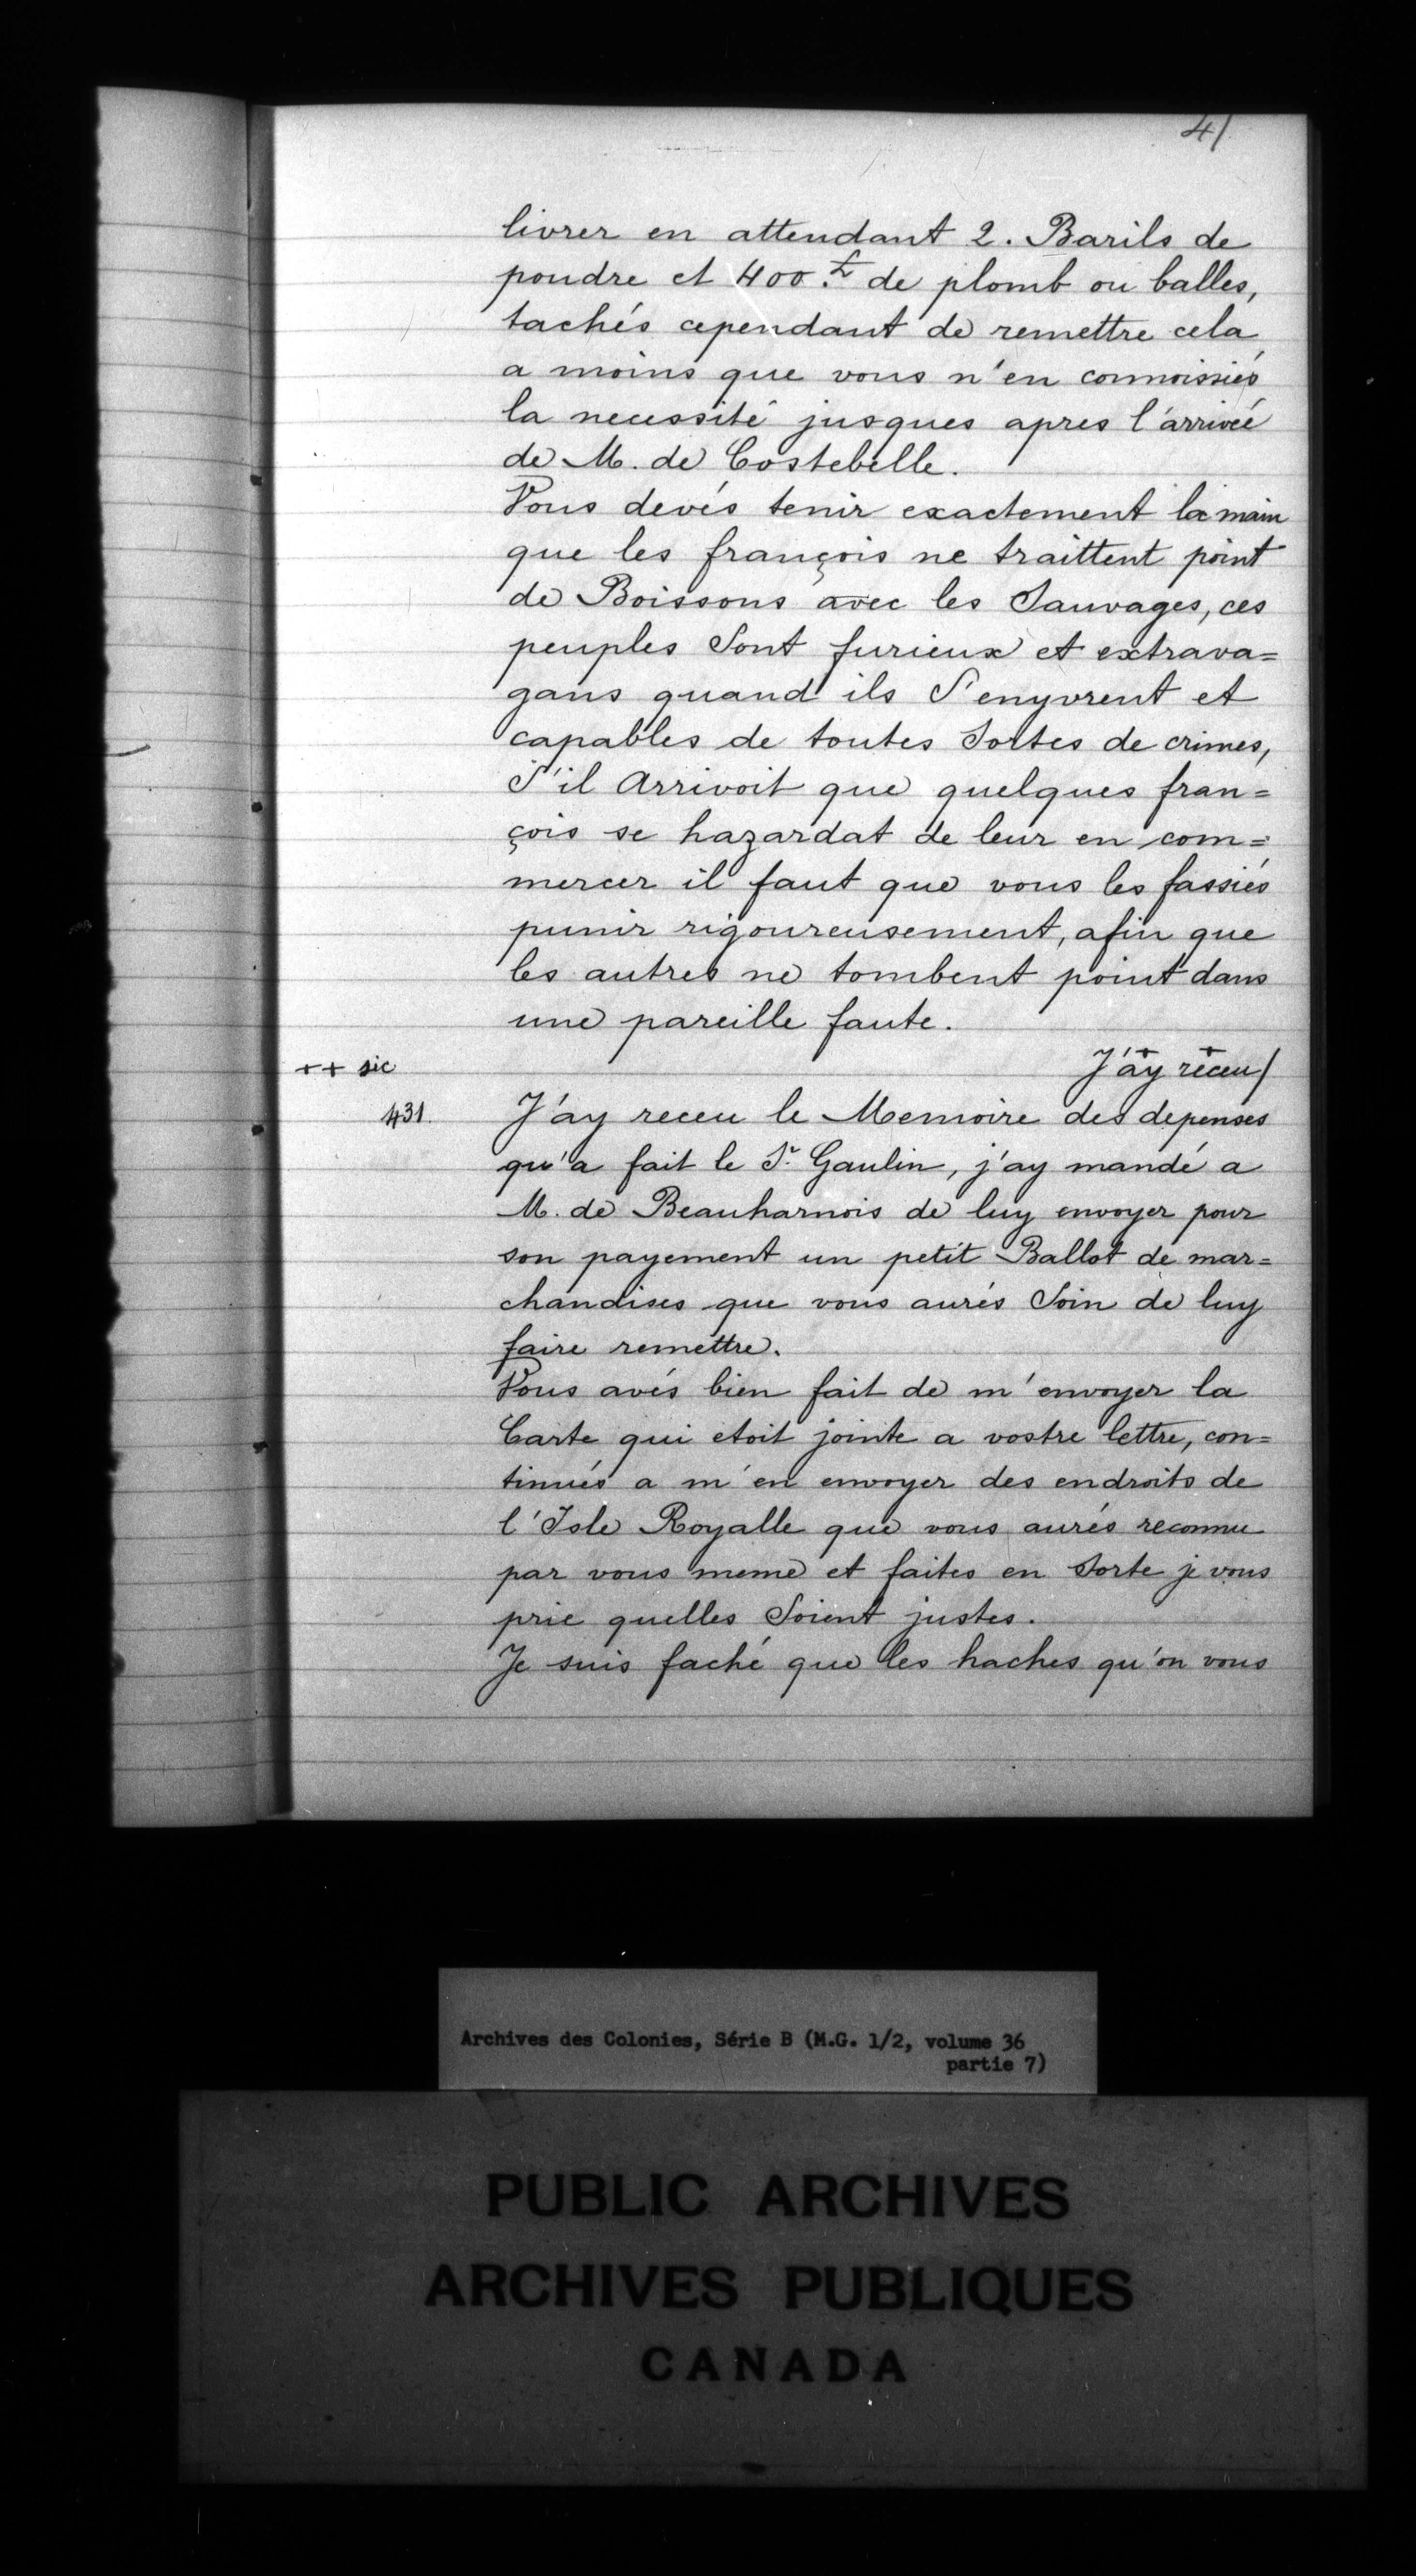 41
livrer en attendant 2. Barils de
poudre et 400.£ de plomb ou balles,
tachés cependant de remettre cela
a moins que vous n'en connoissiés
la necessité jusques apres l'arrivée
de M. de Costebelle.
Vous devés tenir exactement la main
que les françois ne traittent point
de Boissons avec les Sauvages, ces
peuples Sont furieux et extrava=
gans quand ils S'enyvrent et
capables de toutes Sortes de crimes,
S'il Arrivoit que quelques fran=
çois se hazardat de leur en com=
mercer il faut que vous les fassiés
punir rigoureusement, afin que
les autres ne tombent point dans
une pareille faute.
++ sic J'ay+ receu+/
431. J'ay receu le Memoire des depenses
qu'a fait le Sr. Gaulin, j'ay mandé a
M. de Beauharnois de luy envoyer pour
son payement un petit Ballot de mar=
chandises que vous aurés Soin de luy
faire remettre.
Vous avés bien fait de m'envoyer la
Carte qui etoit jointe a vostre lettre, con=
tinués a m'en envoyer des endroits de
l'Isle Royalle que vous aurés reconnu
par vous meme et faites en Sorte je vous
prie quelles Soient justes.
Je suis faché que les haches qu'on vous
Archives des Colonies, Série B (M.G. 1/2, volume 36
partie 7)
PUBLIC ARCHIVES
ARCHIVES PUBLIQUES
CANADA